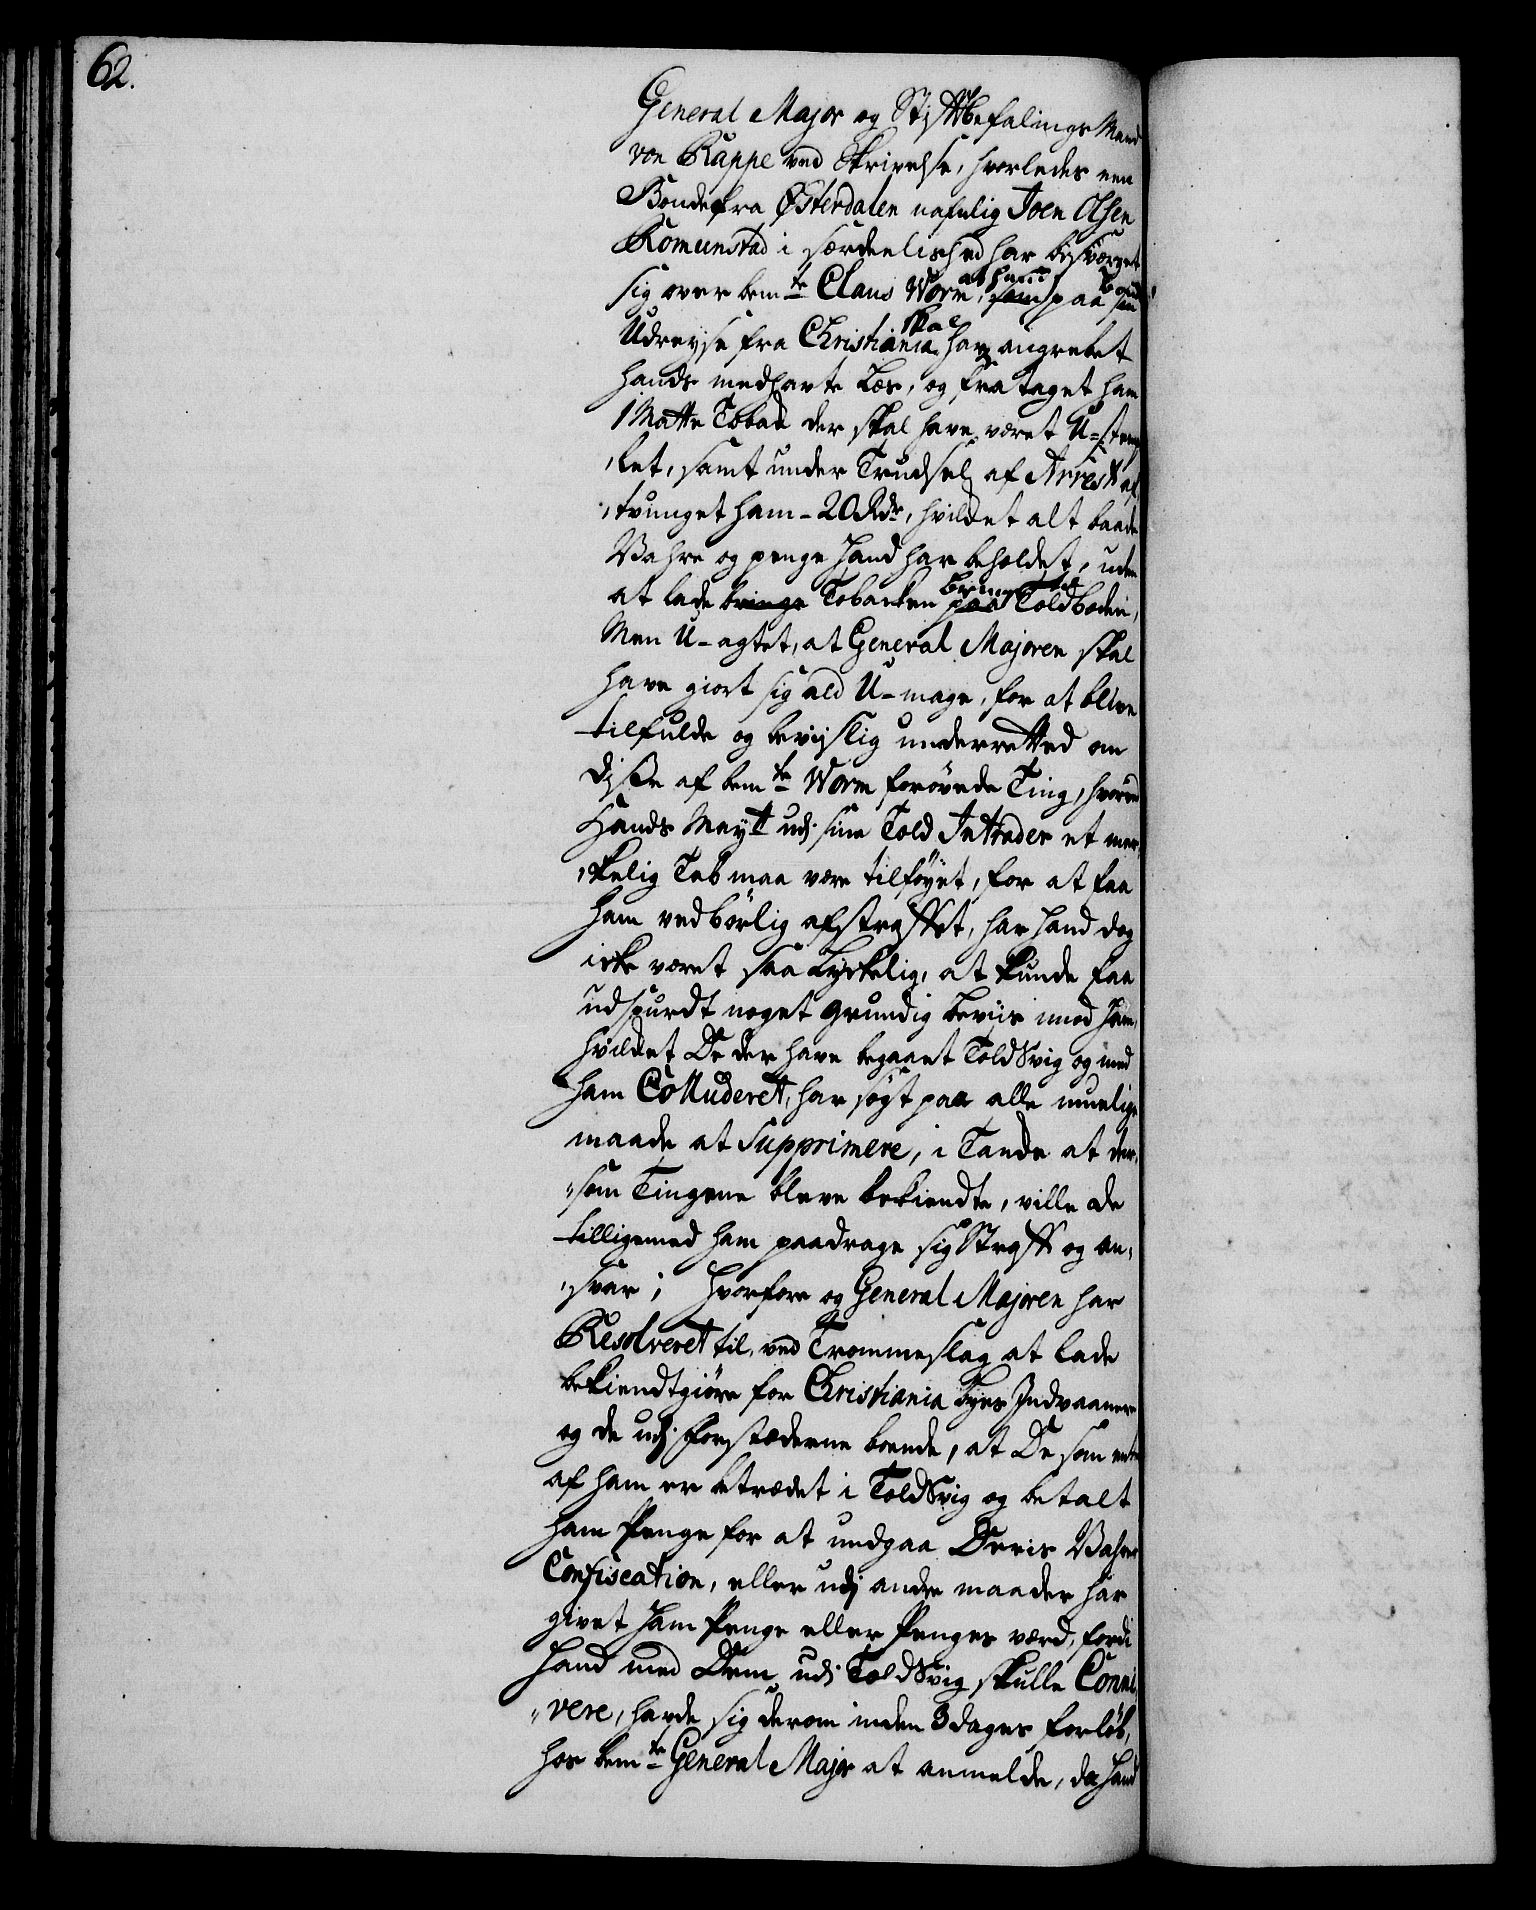 62.
General Major og StiftBefalings Mand
von Rappe ved Skrivelse, hvorledes een
Bonde fra Østerdalen nafnlig Joen Olsen
Komunstad i særdelished har besværget
sig over bemte Claus Worm, at hand som paa
Udreyse fra Christiania, skal have angrebet
hands medhavte Læs, og fra taget ham
1 Matte Tobak der skal have været U-stemp¸
¸let, samt under Trudsel af Arrest af¸
¸tvunget ham - 20 Rdr, hvilket alt baade
Vahre og penge hand har beholdet, uden
at lade bringe Tobacken paa bringe til Toldboden,
Men U-agtet, at General Majoren skal
have giort sig ald U-mage, for at blive
tilfulde og beviislig underretted om
disse af bemte Worm forøvede Ting, hvorved
Hands Mayt udj sine Told Intrader et mer¸
¸kelig Tab maa være tilføyet, for at faa
ham vedbørlig afstraffet, har hand dog
icke været saa Lyckelig, at kunde faa
udspurdt noget grundig beviis imod ham,
hvilket De der have begaaet Toldsvig og med
ham Colluderet, har søgt paa alle muelige
maade at Supprimere, i Tanke at der¸
"som Tingene bleve bekiendte, ville de
tilligemed ham paadrage sig Straff og an¸
¸svar; hvorfore og General Majoren har
Resolveret til, ved Trommeslag at lade
bekiendtgiøre for Christiania byes Indvaanere
og de udj forstæderne boende, at De som enten
af ham er betrædet i Toldsvig og betalt
ham Penge for at undgaa Deris Vahres
Confiscation, eller udj andre maader har
givet ham Penge eller Penges værd, fordi
hand med Dem udj Toldsvig skulle Conni¸
"vere, havde sig derom inden 3 dages forløb,
hos bemte General Major at anmelde, da hand